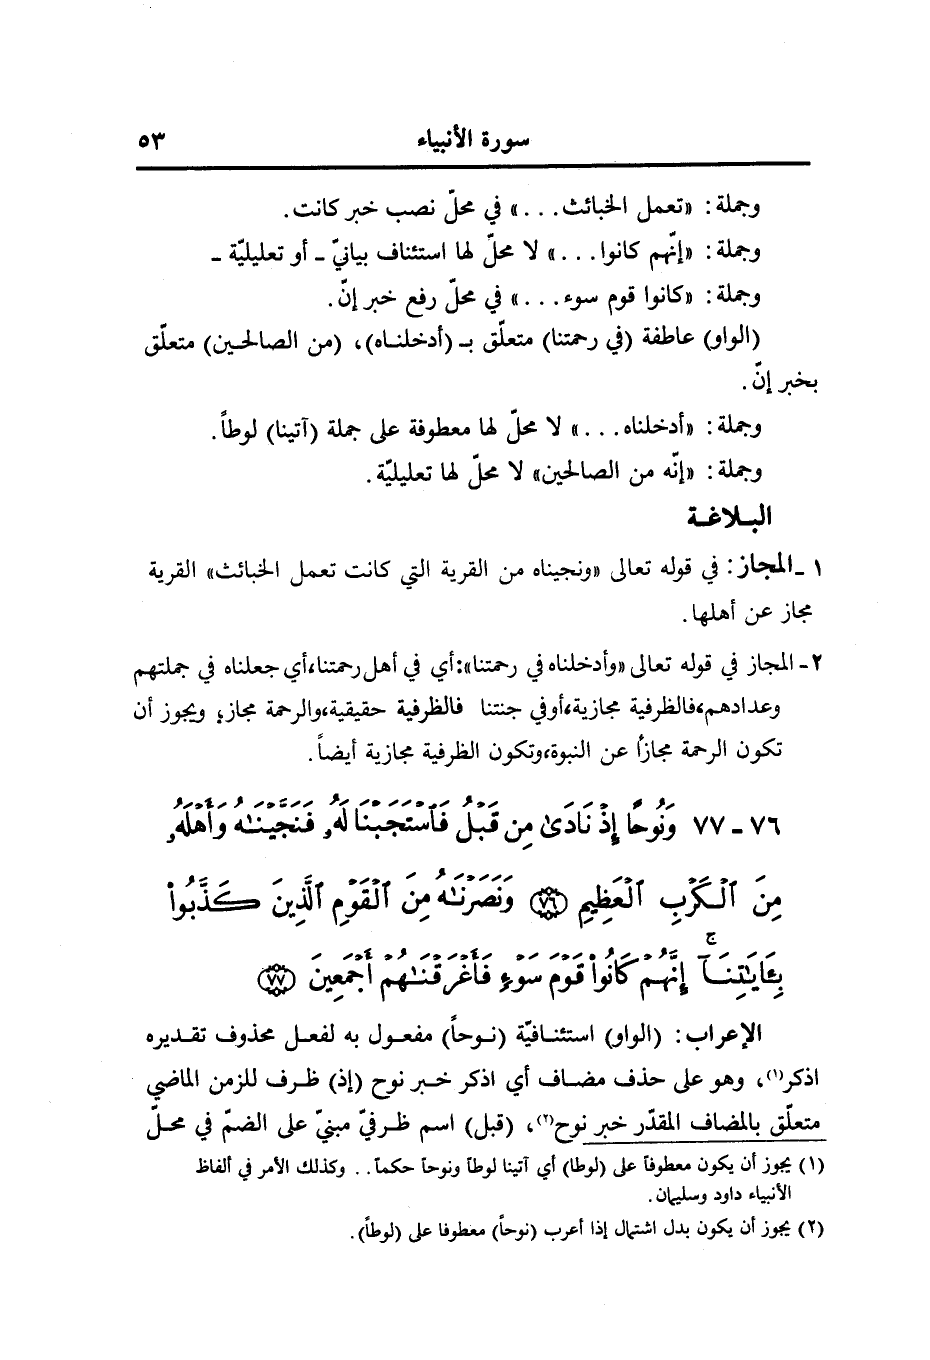 سورة الأنبياء ٥٣
وجملة: «تعمل الخبائث...» في محلّ نصب خبر كانت.
وجملة: «إنّهم كانوا...» لا محلّ لها استئناف بيانيّ - أو تعليليّة -
وجملة: «كانوا قوم سوء...» في محلّ رفع خبر إنّ.
(الواو) عاطفة (في رحمتنا) متعلّق بـ (أدخلناه)، (من الصالحين) متعلّق
بخبر إنّ.
وجملة: «أدخلناه...» لا محلّ لها معطوفة على جملة (آتينا) لوطاً.
وجملة: «إنّه من الصالحين» لا محلّ لها تعليليّة.
البلاغة
١ - المجاز: في قوله تعالى «ونجيناه من القرية التي كانت تعمل الخبائث» القرية
مجاز عن أهلها.
٢ - المجاز في قوله تعالى «وأدخلناه في رحمتنا»: أي في أهل رحمتنا، أي جعلناه في جملتهم
وعدادهم، فالظرفية مجازية، أو في جنتنا فالظرفية حقيقية، والرحمة مجاز؛ ويجوز أن
تكون الرحمة مجازاً عن النبوة، وتكون الظرفية مجازية أيضاً.
٧٦ - ٧٧ وَنُوحًا إِذْ نَادَىٰ مِن قَبْلُ فَٱسْتَجَبْنَا لَهُۥ فَنَجَّيْنَٰهُ وَأَهْلَهُۥ
مِنَ ٱلْكَرْبِ ٱلْعَظِيمِ ﴿٧٦﴾ وَنَصَرْنَٰهُ مِنَ ٱلْقَوْمِ ٱلَّذِينَ كَذَّبُوا۟
بِـَٔايَٰتِنَآ ۚ إِنَّهُمْ كَانُوا۟ قَوْمَ سَوْءٍ فَأَغْرَقْنَٰهُمْ أَجْمَعِينَ ﴿٧٧﴾
الإعراب: (الواو) استئنافيّة (نوحاً) مفعول به لفعل محذوف تقديره
اذكر(١)، وهو على حذف مضاف أي اذكر خبر نوح (إذ) ظرف للزمن الماضي
متعلّق بالمضاف المقدّر خبر نوح(٢)، (قبل) اسم ظرفيّ مبنيّ على الضمّ في محلّ
(١) يجوز أن يكون معطوفاً على (لوطا) أي آتينا لوطاً ونوحاً حكماً.. وكذلك الأمر في ألفاظ
الأنبياء داود وسليمان.
(٢) يجوز أن يكون بدل اشتمال إذا أعرب (نوحاً) معطوفا على (لوطاً).